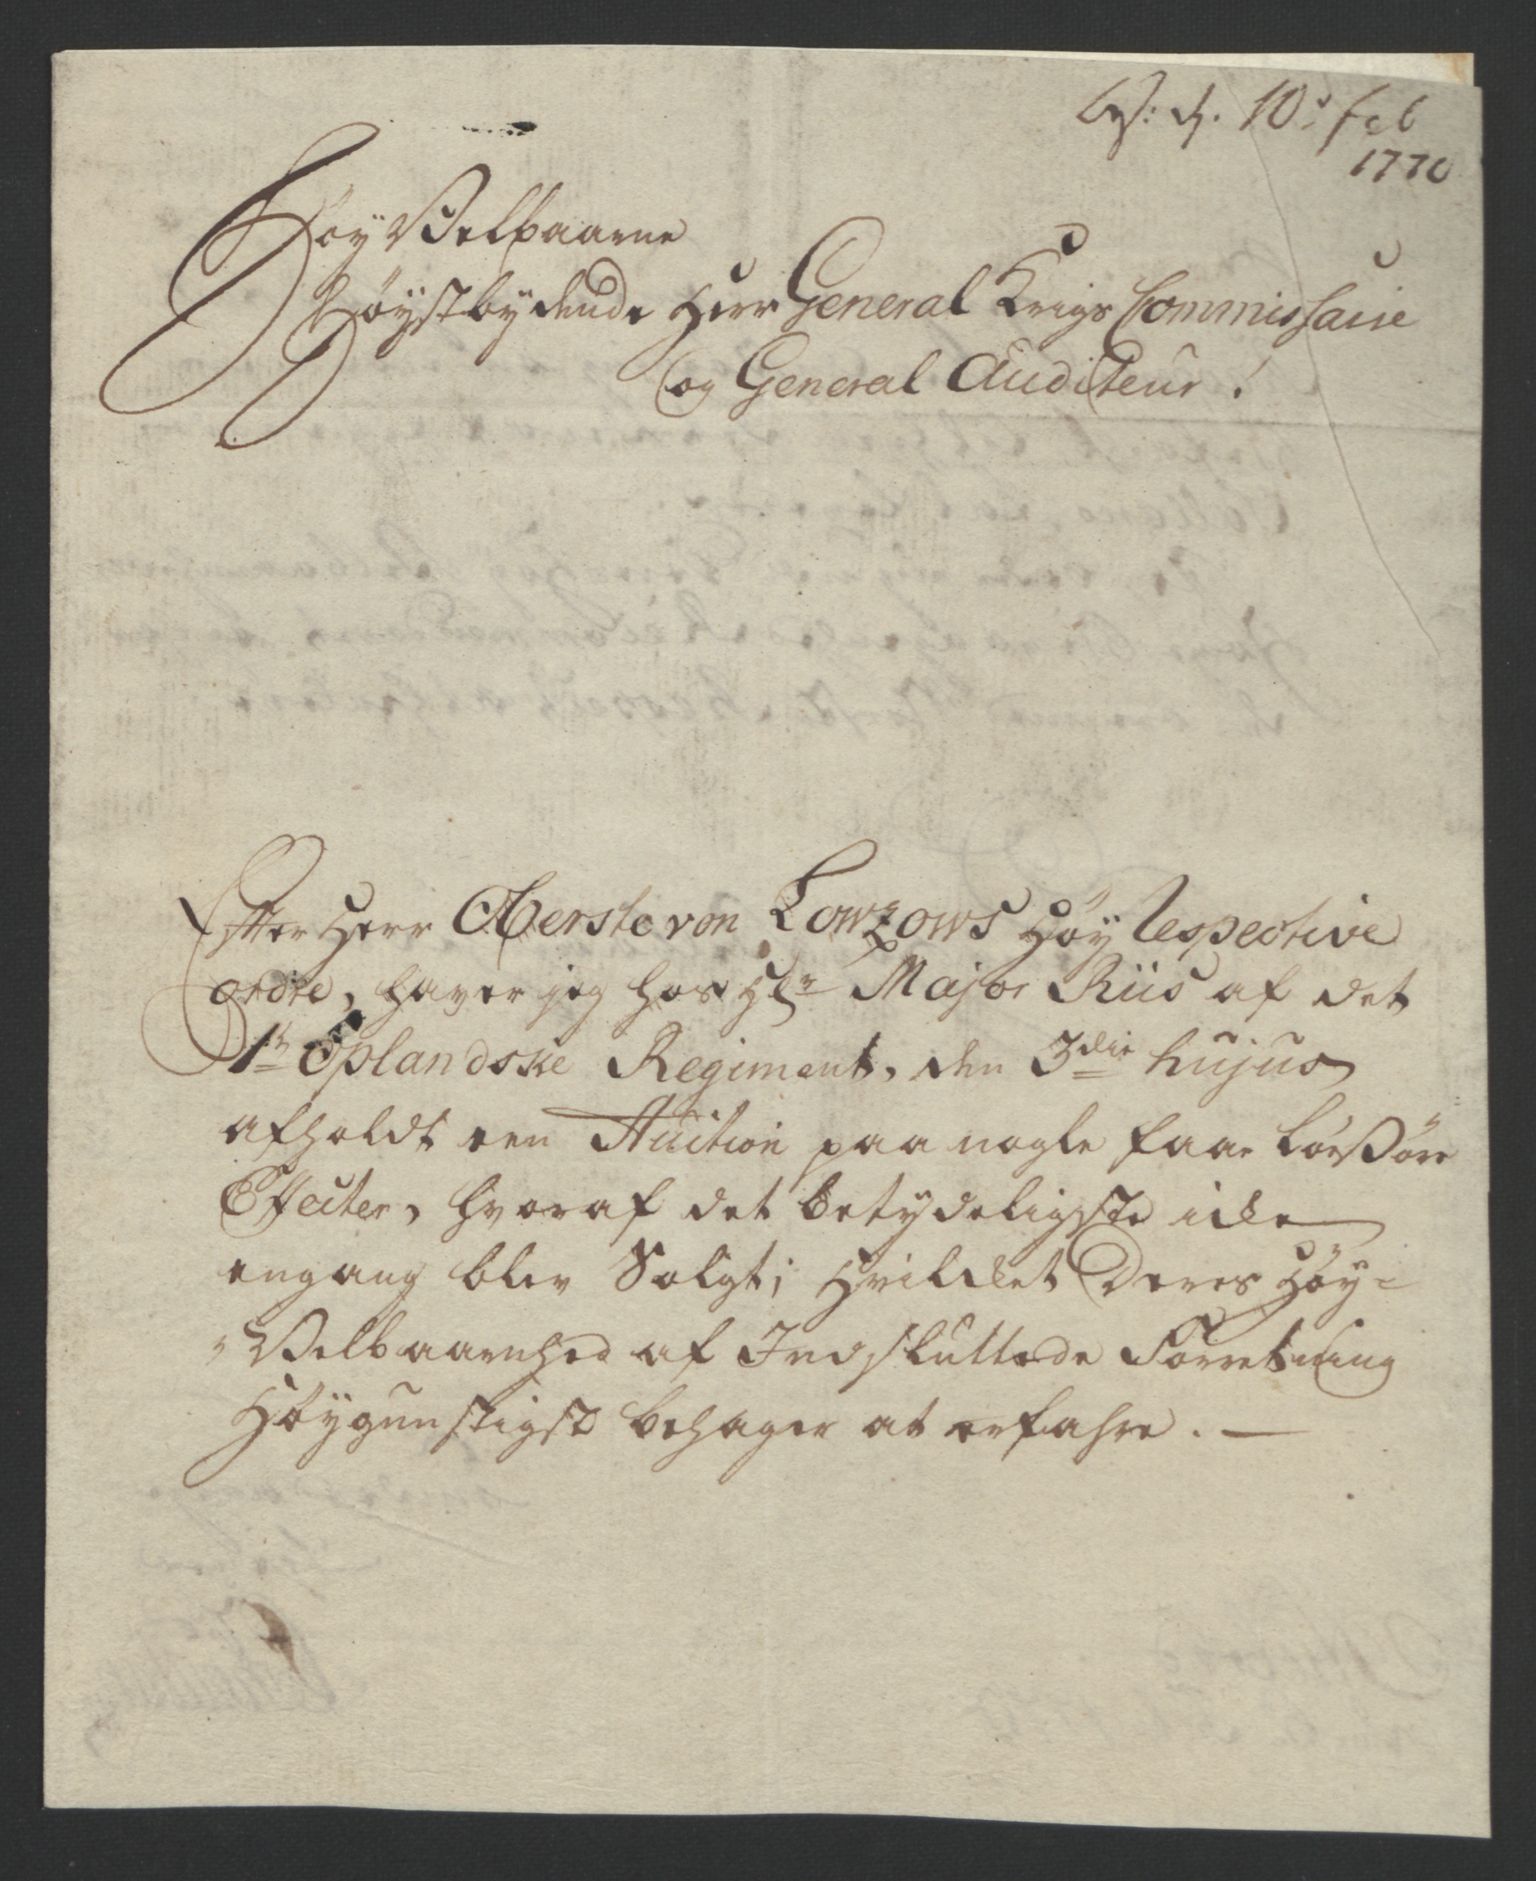 d. 10d feb
1770
Høy Velbaarne
Høystbydende Herr General Krigs Commissaire
og General Auditeur!
Efter Herr Oberste von Lowzows Høy respective
ordre, haver jeg hos Hr Major Riis af det
1te Oplandske Regiment, den 3die hujus
afholdt een Auction paa nogle faae Løesøre
Effecter, hvoraf det betydeligste icke
engang blev Solgt; hvilcket Deres Høy-
Velbaarenhed af Indsluttede Forretning
Høygunstigst behager at erfahre. —